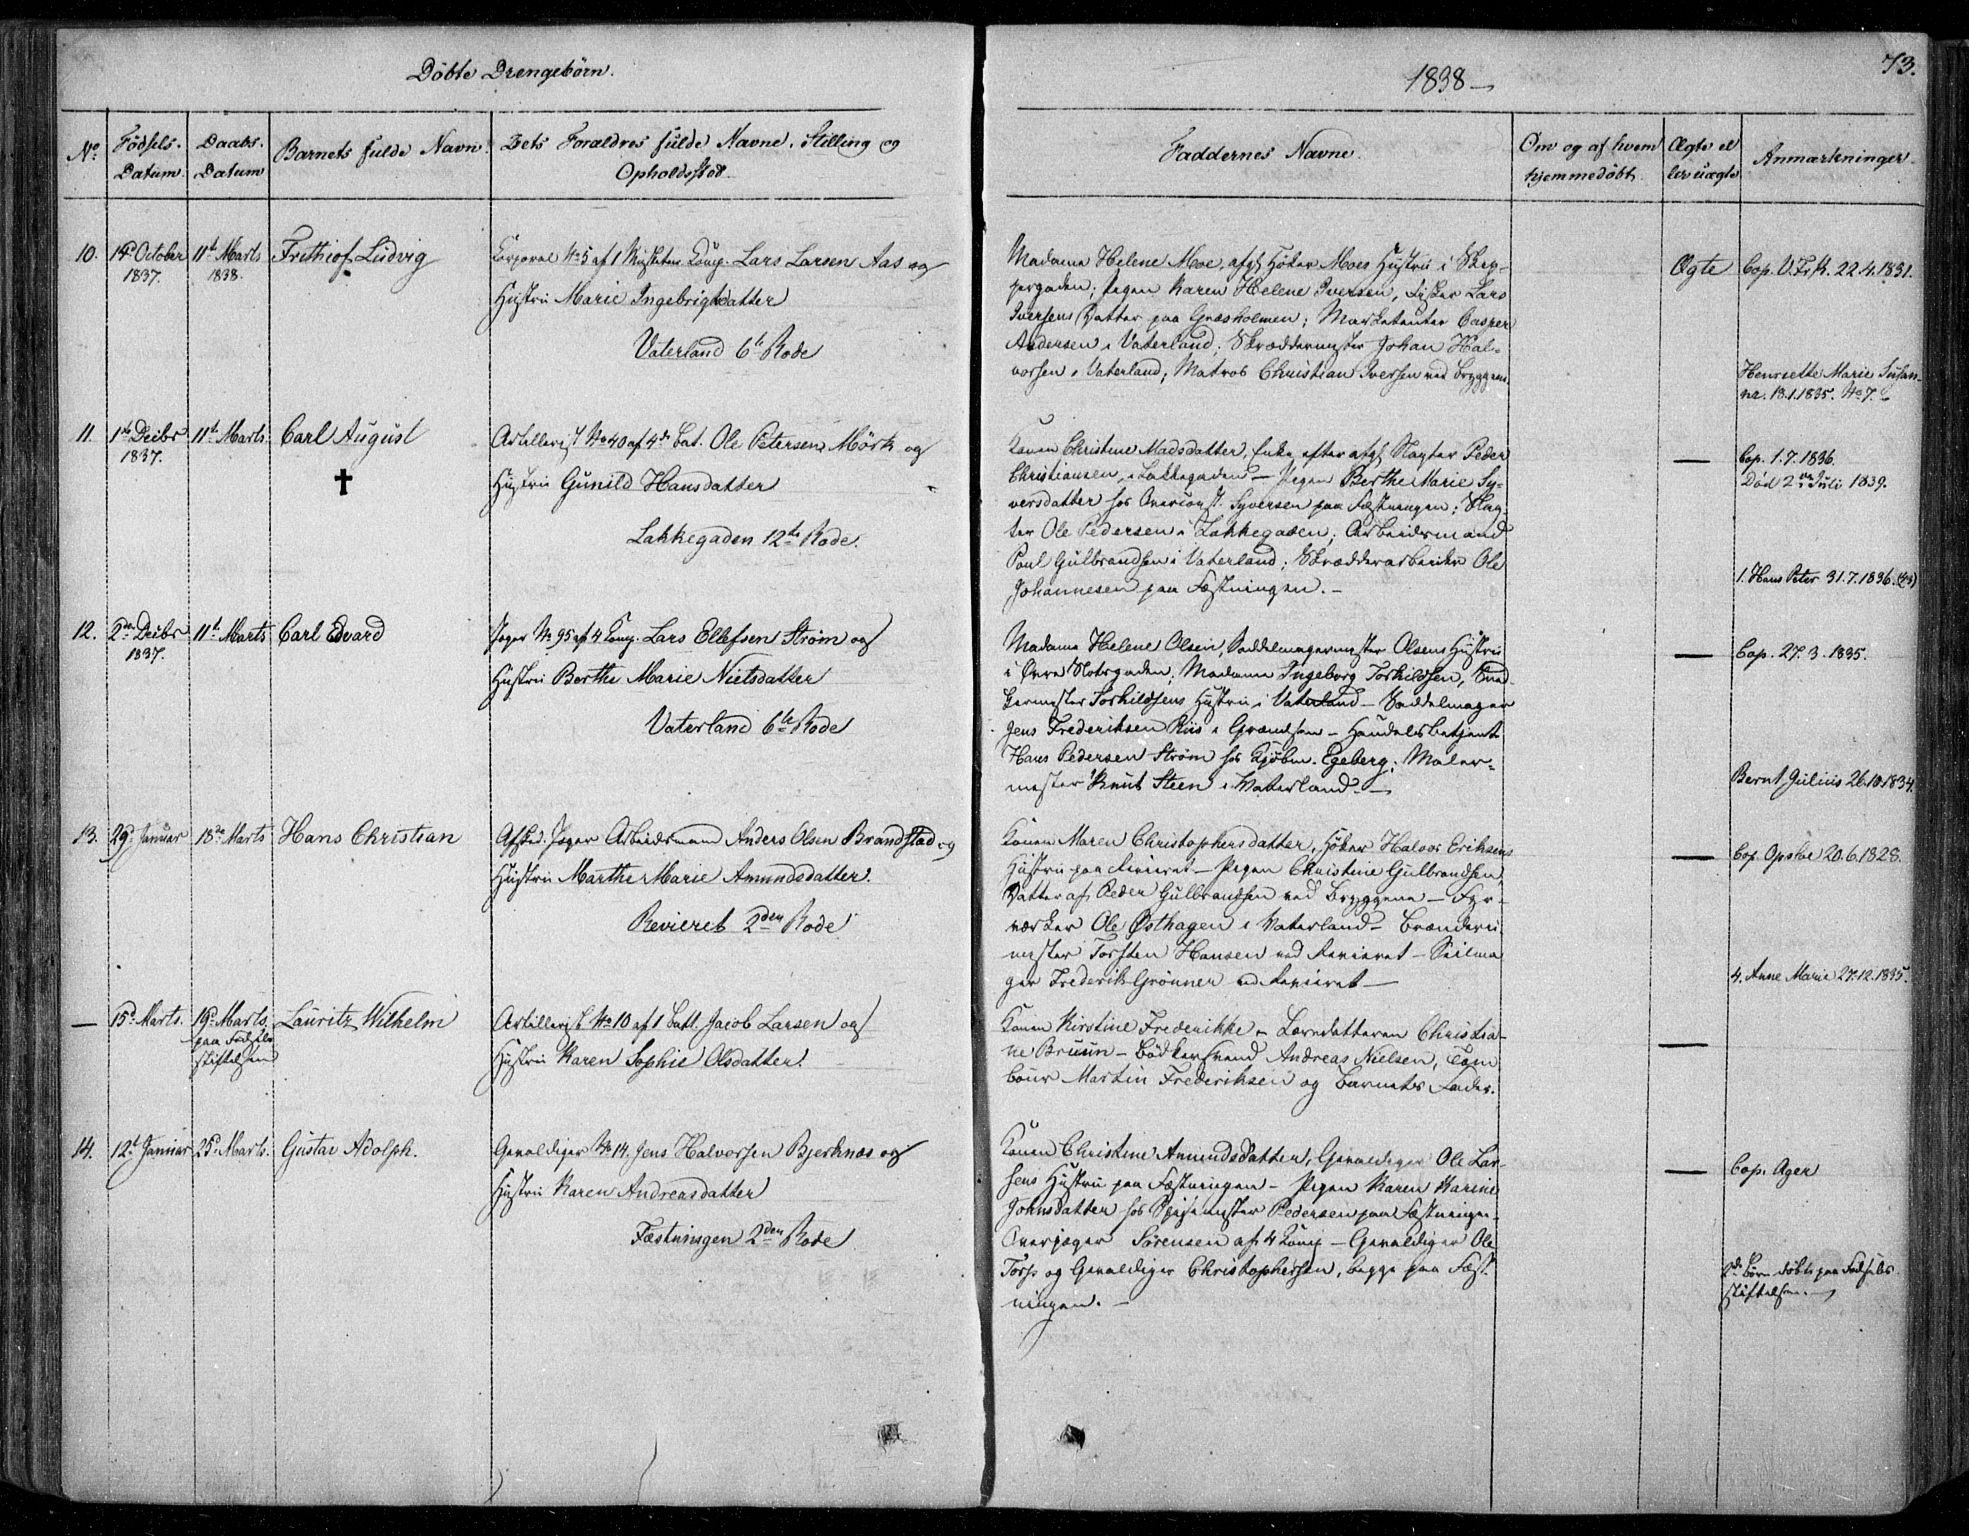 Döbte Drengebörn.
1838
73.
No
Födsels-Datum.
Daabs-Datum
Barnets fulde Navn.
Dets Forældres fulde Navne, Stilling og
Opholdssted.
Faddernes Navne.
Om og af hvem
hjemmedöbt.
Ægte el
ler uægte
Anmærkninger
10.
14d October
1837.
11t Marts
1838.
Frithiof Ludvig
Corporal No 5 af 1 Musketeer Comp. Lars Larsen Aas og
Hustru Marie Ingebrigtsdatter
Vaterland 6te Rode
Madame Helene Moe, afg. Höker Moes Hustru i Skip-
pergaden; Pigen Karen Helene Iversen, Fisker Lars
Iversens Datter paa Græsholmen; Marketenter Casper
Andersen i Vaterland; Skræddermester Johan Hal-
vorsen i Vaterland; Matros Christian Iversen ved Bryggen.
Ægte
Cop. V. Frk. 22.4.1831.
Henriette Marie Susan-
na. 13.1.1835. No 7.
11
1ste Decbr
1837.
11t Marts
Carl August
✝
Artillerist No 40 af 4de Bat. Ole Petersen Mörk og
Hustru Gunild Hansdatter
Lakkegaden 12te Rode.
Konen Christine Madsdatter, Enke efter afg. Slagter Peder
Christiansen, i Lakkegaden - Pigen Berthe Marie Sy-
versdatter hos Overconst. Syversen paa Fæstningen; Slag-
ter Ole Pedersen i Lakkegaden; Arbeidsmand
Paul Gulbrandsen i Vaterland; Skrædderarbeider Ole
Johannesen paa Fæstningen. -
—
Cop. 1.7.1836.
Död 2den Juli 1839.
1. Hans Peter 31.7.1836.
12.
2den Decbr
1837.
11t Marts
Carl Edvard
Jæger No 95 af 4 Comp. Lars Ellefsen Ström og
Hustru Berthe Marie Nielsdatter
Vaterland 6te Rode
Madame Helene Olsen, Saddelmagermester Olsens Hustru
i Övre Slotsgaden; Madame Ingeborg Torkildsen, Sned-
kermester Torkildsens Hustru i Vaterland - Saddelmager
Jens Frederiksen Riis i Grændsen - Handelsbetjent
Hans Pedersen Ström hos Kjöbm. Egeberg; Maler-
mester Knut Steen i Vaterland. -
—
Cop. 27.3.1835.
Bernt Julius 26.10.1834.
13.
29d Januar
18de Marts
Hans Christian
Afsked. Jæger Arbeidsmand Anders Olsen Brandstad og
Hustru Marthe Marie Amundsdatter.
Revieret 2den Rode
Konen Maren Christophersdatter, Höker Halvor Eriksens
Hustru paa Revieret - Pigen Christine Gulbrandsen,
Datter af Peder Gulbrandsen ved Bryggene - Fyr-
værker Ole Östhagen i Vaterland - Brænderi-
mester Torsten Hansen ved Revieret - Seilma
ger Frederik Grönner ved Revieret -
—
Cop. Opsloe 20.6.1828.
4. Anne Marie 27.12.1835.
—
15d Marts.
19d Marts.
paa Födsels
stiftelsen
Lauritz Wilhelm
Artillerist No 10 af 1 Batt. Jacob Larsen og
Hustru Karen Sophie Olsdatter.
Konen Kirstine Frederikke - Læredatteren Christia-
ne Bruun - Bödkersvend Andreas Nielsen, Tam
bour Martin Frederiksen og Barnets Fader.
—
14.
12t Januar
25d Marts.
Gustav Adolph.
Gevaldiger No 14. Jens Halvorsen Bjerknæs og
Hustru Karen Andreasdatter
Fæstningen 2den Rode
Konen Christine Amundsdatter, Gevaldiger Ole Lar-
sens Hustru paa Fæstningen - Pigen Karen Karine
Johnsdatter hos Spisemester Pedersen paa Fæstningen -
Overjæger Sörensen af 4 Comp - Gevaldiger Ole
Torp og Gevaldiger Christophersen, begge paa Fæst-
ningen. -
—
Cop. Ager
2de Börn döbte paa Födsels-
stiftelsen.